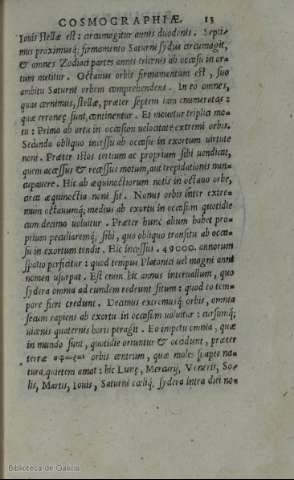 COSMOGRAPHIÆ. 13
Iouis stellæ est: circumagitur annis duodenis. Septi-
mus proximusq; firmamento Saturni sydus circumagit,
& omnes Zodiaci partes annis tricenis ab occasu in or-
tum metitur. Octauus orbis firmamentum est, suo
ambitu Saturni orbem comprehendens. In eo omnes,
quas cernimus, stellæ, præter septem iam enumeratas:
quæ erroneę sunt, continentur. Et mouetur triplici mo-
tu: Primo ab ortu in occasum velocitate extremi orbis.
Secundo obliquo incessu ab occasu in exortum virtute
noni. Præter istos tertium ac proprium sibi vendicat,
quem accessus & recessus motum, aut trepidationis nun-
cupauere. Hic ab æquinoctiorum notis in octauo orbe,
circa æquinoctia noni fit. Nonus orbis inter extre-
mum octauumq; medius ab exortu in occasum quotidie
cum decimo voluitur. Præter hunc alium habet pro-
prium peculiaremq; sibi, quo obliquo transitu ab occa-
su in exortum tendit. Hic incessus .49000. annorum
spatio perficitur: quod tempus Platonici vel magni anni
nomen vsurpat. Est enim hic annus interuallum, quo
sydera omnia ad eundem redeunt situm: quod eo tem-
pore fieri credunt. Decimus extremusq; orbis, omnia
secum rapiens ab exortu in occasum voluitur: cursumq;
vicenis quaternis horis peragit. Eo impetu omnia, quæ
in mundo sunt, quotidie oriuntur & occidunt, præter
terræ orbis centrum, quæ moles suapte na-
tura quietem amat: hic Lunę, Mercurij, Veneris, So-
lis, Martis, Iouis, Saturni cœliq; sydera intra diei no-
Biblioteca de Galicia